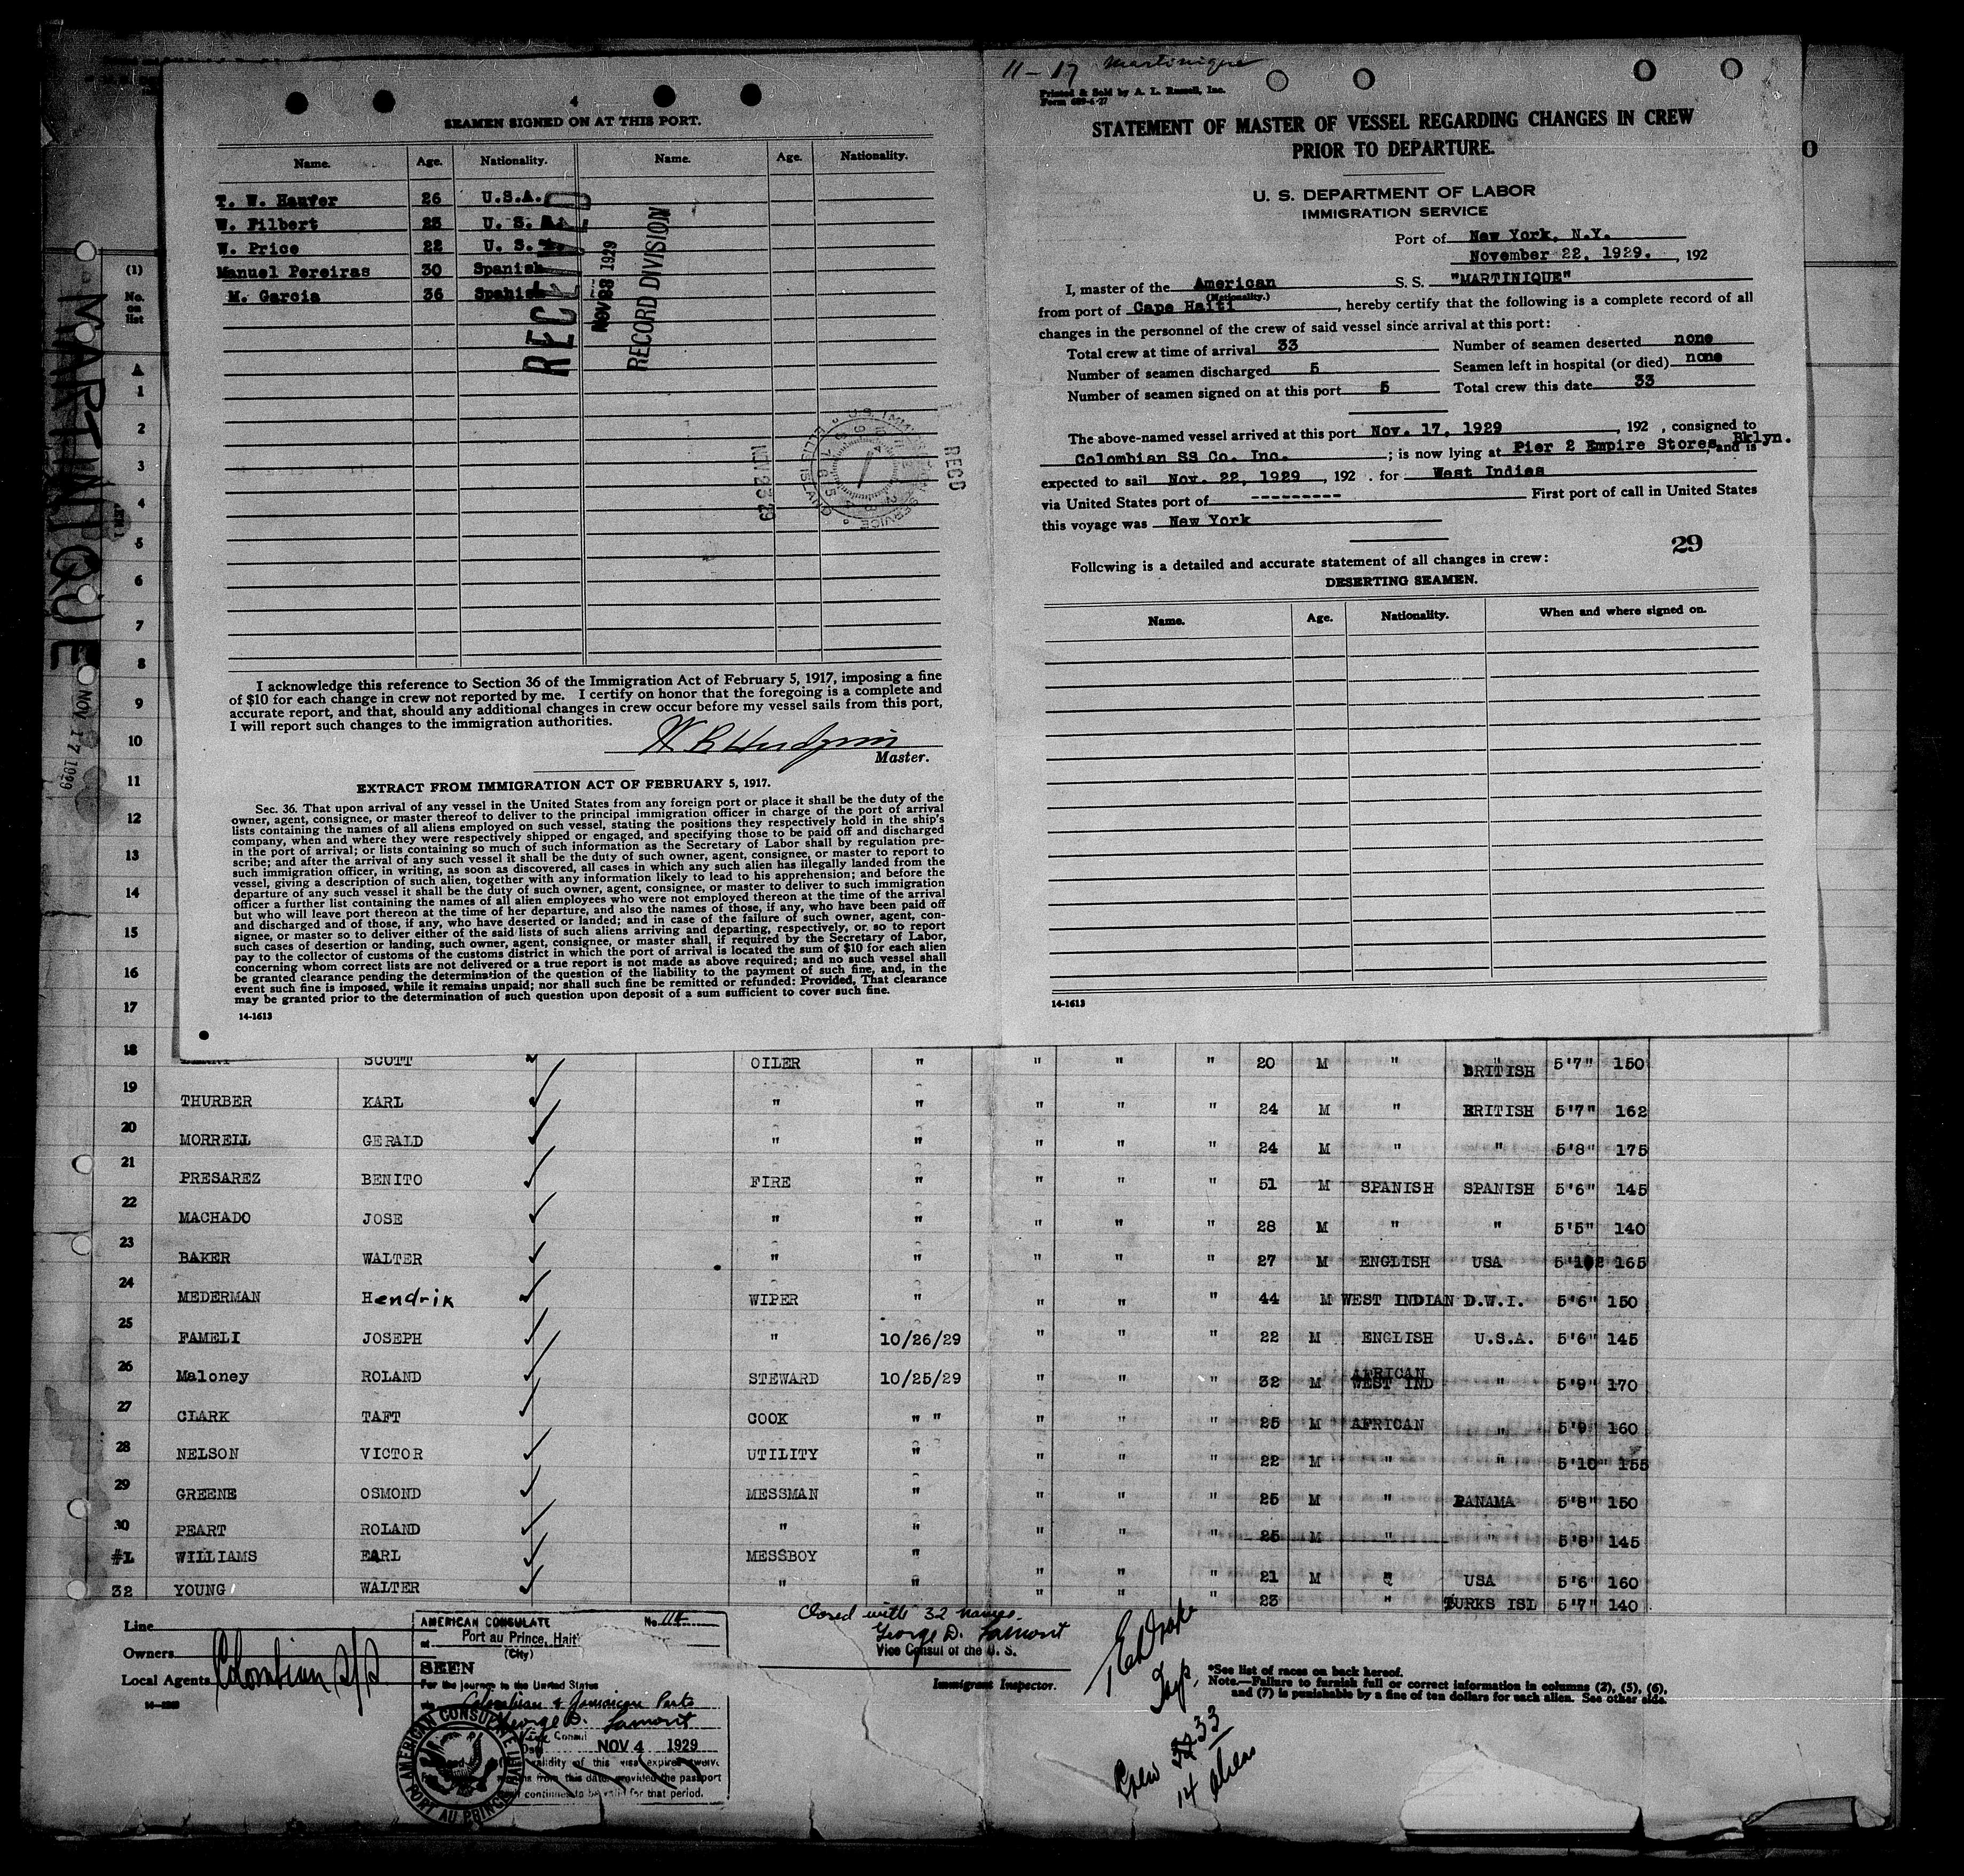 11-17 Martinique
Printed & Sold by A. L. Russell, Inc.
Form 689-6-27
4
SEAMEN SIGNED ON AT THIS PORT.
Name. Age. Nationality. Name. Age. Nationality.
T. W. Haufer 26 U.S.A.
W. Filbert 25 U. S. A.
W. Price 22 U. S. A.
Manuel Pereiras 30 Spanish
M. Garcia 36 Spanish
RECEIVED
NOV 23 1929
RECORD DIVISION
U.S. IMMIGRATION SERVICE
ELLIS ISLAND
NOV 23 29
RECD
I acknowledge this reference to Section 36 of the Immigration Act of February 5, 1917, imposing a fine
of $10 for each change in crew not reported by me. I certify on honor that the foregoing is a complete and
accurate report, and that, should any additional changes in crew occur before my vessel sails from this port,
I will report such changes to the immigration authorities.
Master.
EXTRACT FROM IMMIGRATION ACT OF FEBRUARY 5, 1917.
Sec. 36. That upon arrival of any vessel in the United States from any foreign port or place it shall be the duty of the
owner, agent, consignee, or master thereof to deliver to the principal immigration officer in charge of the port of arrival
lists containing the names of all aliens employed on such vessel, stating the positions they respectively hold in the ship's
company, when and where they were respectively shipped or engaged, and specifying those to be paid off and discharged
in the port of arrival; or lists containing so much of such information as the Secretary of Labor shall by regulation pre-
scribe; and after the arrival of any such vessel it shall be the duty of such owner, agent, consignee, or master to report to
such immigration officer, in writing, as soon as discovered, all cases in which any such alien has illegally landed from the
vessel, giving a description of such alien, together with any information likely to lead to his apprehension; and before the
departure of any such vessel it shall be the duty of such owner, agent, consignee, or master to deliver to such immigration
officer a further list containing the names of all alien employees who were not employed thereon at the time of the arrival
but who will leave port thereon at the time of her departure, and also the names of those, if any, who have been paid off
and discharged and of those, if any, who have deserted or landed; and in case of the failure of such owner, agent, con-
signee, or master so to deliver either of the said lists of such aliens arriving and departing, respectively, or so to report
such cases of desertion or landing, such owner, agent, consignee, or master shall, if required by the Secretary of Labor,
pay to the collector of customs of the customs district in which the port of arrival is located the sum of $10 for each alien
concerning whom correct lists are not delivered or a true report is not made as above required; and no such vessel shall
be granted clearance pending the determination of the question of the liability to the payment of such fine, and, in the
event such fine is imposed, while it remains unpaid; nor shall such fine be remitted or refunded: Provided, That clearance
may be granted prior to the determination of such question upon deposit of a sum sufficient to cover such fine.
14-1613
STATEMENT OF MASTER OF VESSEL REGARDING CHANGES IN CREW
PRIOR TO DEPARTURE.
U. S. DEPARTMENT OF LABOR
IMMIGRATION SERVICE
Port of New York, N.Y.
November 22, 1929. , 192
I, master of the American S. S. "MARTINIQUE"
(Nationality.)
from port of Cape Haiti , hereby certify that the following is a complete record of all
changes in the personnel of the crew of said vessel since arrival at this port:
Total crew at time of arrival 33 Number of seamen deserted none
Number of seamen discharged 5 Seamen left in hospital (or died) none
Number of seamen signed on at this port 5 Total crew this date 33
The above-named vessel arrived at this port Nov. 17, 1929 , 192 , consigned to
Colombian SS Co. Inc. ; is now lying at Pier 2 Empire Stores, Bklyn. and is
expected to sail Nov. 22, 1929 , 192 . for West Indies
via United States port of --------- First port of call in United States
this voyage was New York
29
Following is a detailed and accurate statement of all changes in crew:
DESERTING SEAMEN.
Name. Age. Nationality. When and where signed on.
14-1613
MARTINIQUE
NOV 17 1929
(1)
No.
on
list
A
1
2
3
4
5
6
7
8
9
10
11
12
13
14
15
16
17
18 SCOTT OILER " " " " 20 M " " BRITISH 5'7" 150
19 THURBER KARL " " " " " 24 M " BRITISH 5'7" 162
20 MORRELL GERALD " " " " " 24 M " " 5'8" 175
21 PRESAREZ BENITO FIRE " " " " 51 M SPANISH SPANISH 5'6" 145
22 MACHADO JOSE " " " " " 28 M " " 5'5" 140
23 BAKER WALTER " " " " " 27 M ENGLISH USA 165
24 MEDERMAN Hendrik WIPER " " " " 44 M WEST INDIAN D.W.I. 5'6" 150
25 FAMELI JOSEPH " 10/26/29 " " " 22 M ENGLISH U.S.A. 5'6" 145
26 Maloney ROLAND STEWARD 10/25/29 " " " 32 M AFRICAN WEST IND " 5'9" 170
27 CLARK TAFT COOK " " " " " 25 M AFRICAN " 5'9" 160
28 NELSON VICTOR UTILITY " " " " 22 M " " 5'10" 155
29 GREENE OSMOND MESSMAN " " " " 25 M " PANAMA 5'8" 150
30 PEART ROLAND " " " " " 25 M " " 5'8" 145
WILLIAMS EARL MESSBOY " " " " 21 M " USA 5'6" 160
32 YOUNG WALTER " " " " " 23 " TURKS ISL 5'7" 140
Line
Owners
Local Agents Colombian S/S
AMERICAN CONSULATE No. 114
at Port au Prince, Haiti
(City)
SEEN
For the journey to the United States
via Colombian & Jamaican Ports
George D. Lamont
Vice Consul
Date NOV 4 1929
validity of this visa expires twelve
months from this date, provided the passport
continues to be valid for that period.
AMERICAN CONSULATE PORT AU PRINCE HAITI
Closed with 32 names.
George D. Lamont
Vice Consul of the U. S.
Immigrant Inspector.
Insp.
Crew 33
14 aliens
*See list of races on back hereof.
Note.—Failure to furnish full or correct information in columns (2), (5), (6),
and (7) is punishable by a fine of ten dollars for each alien. See other side.